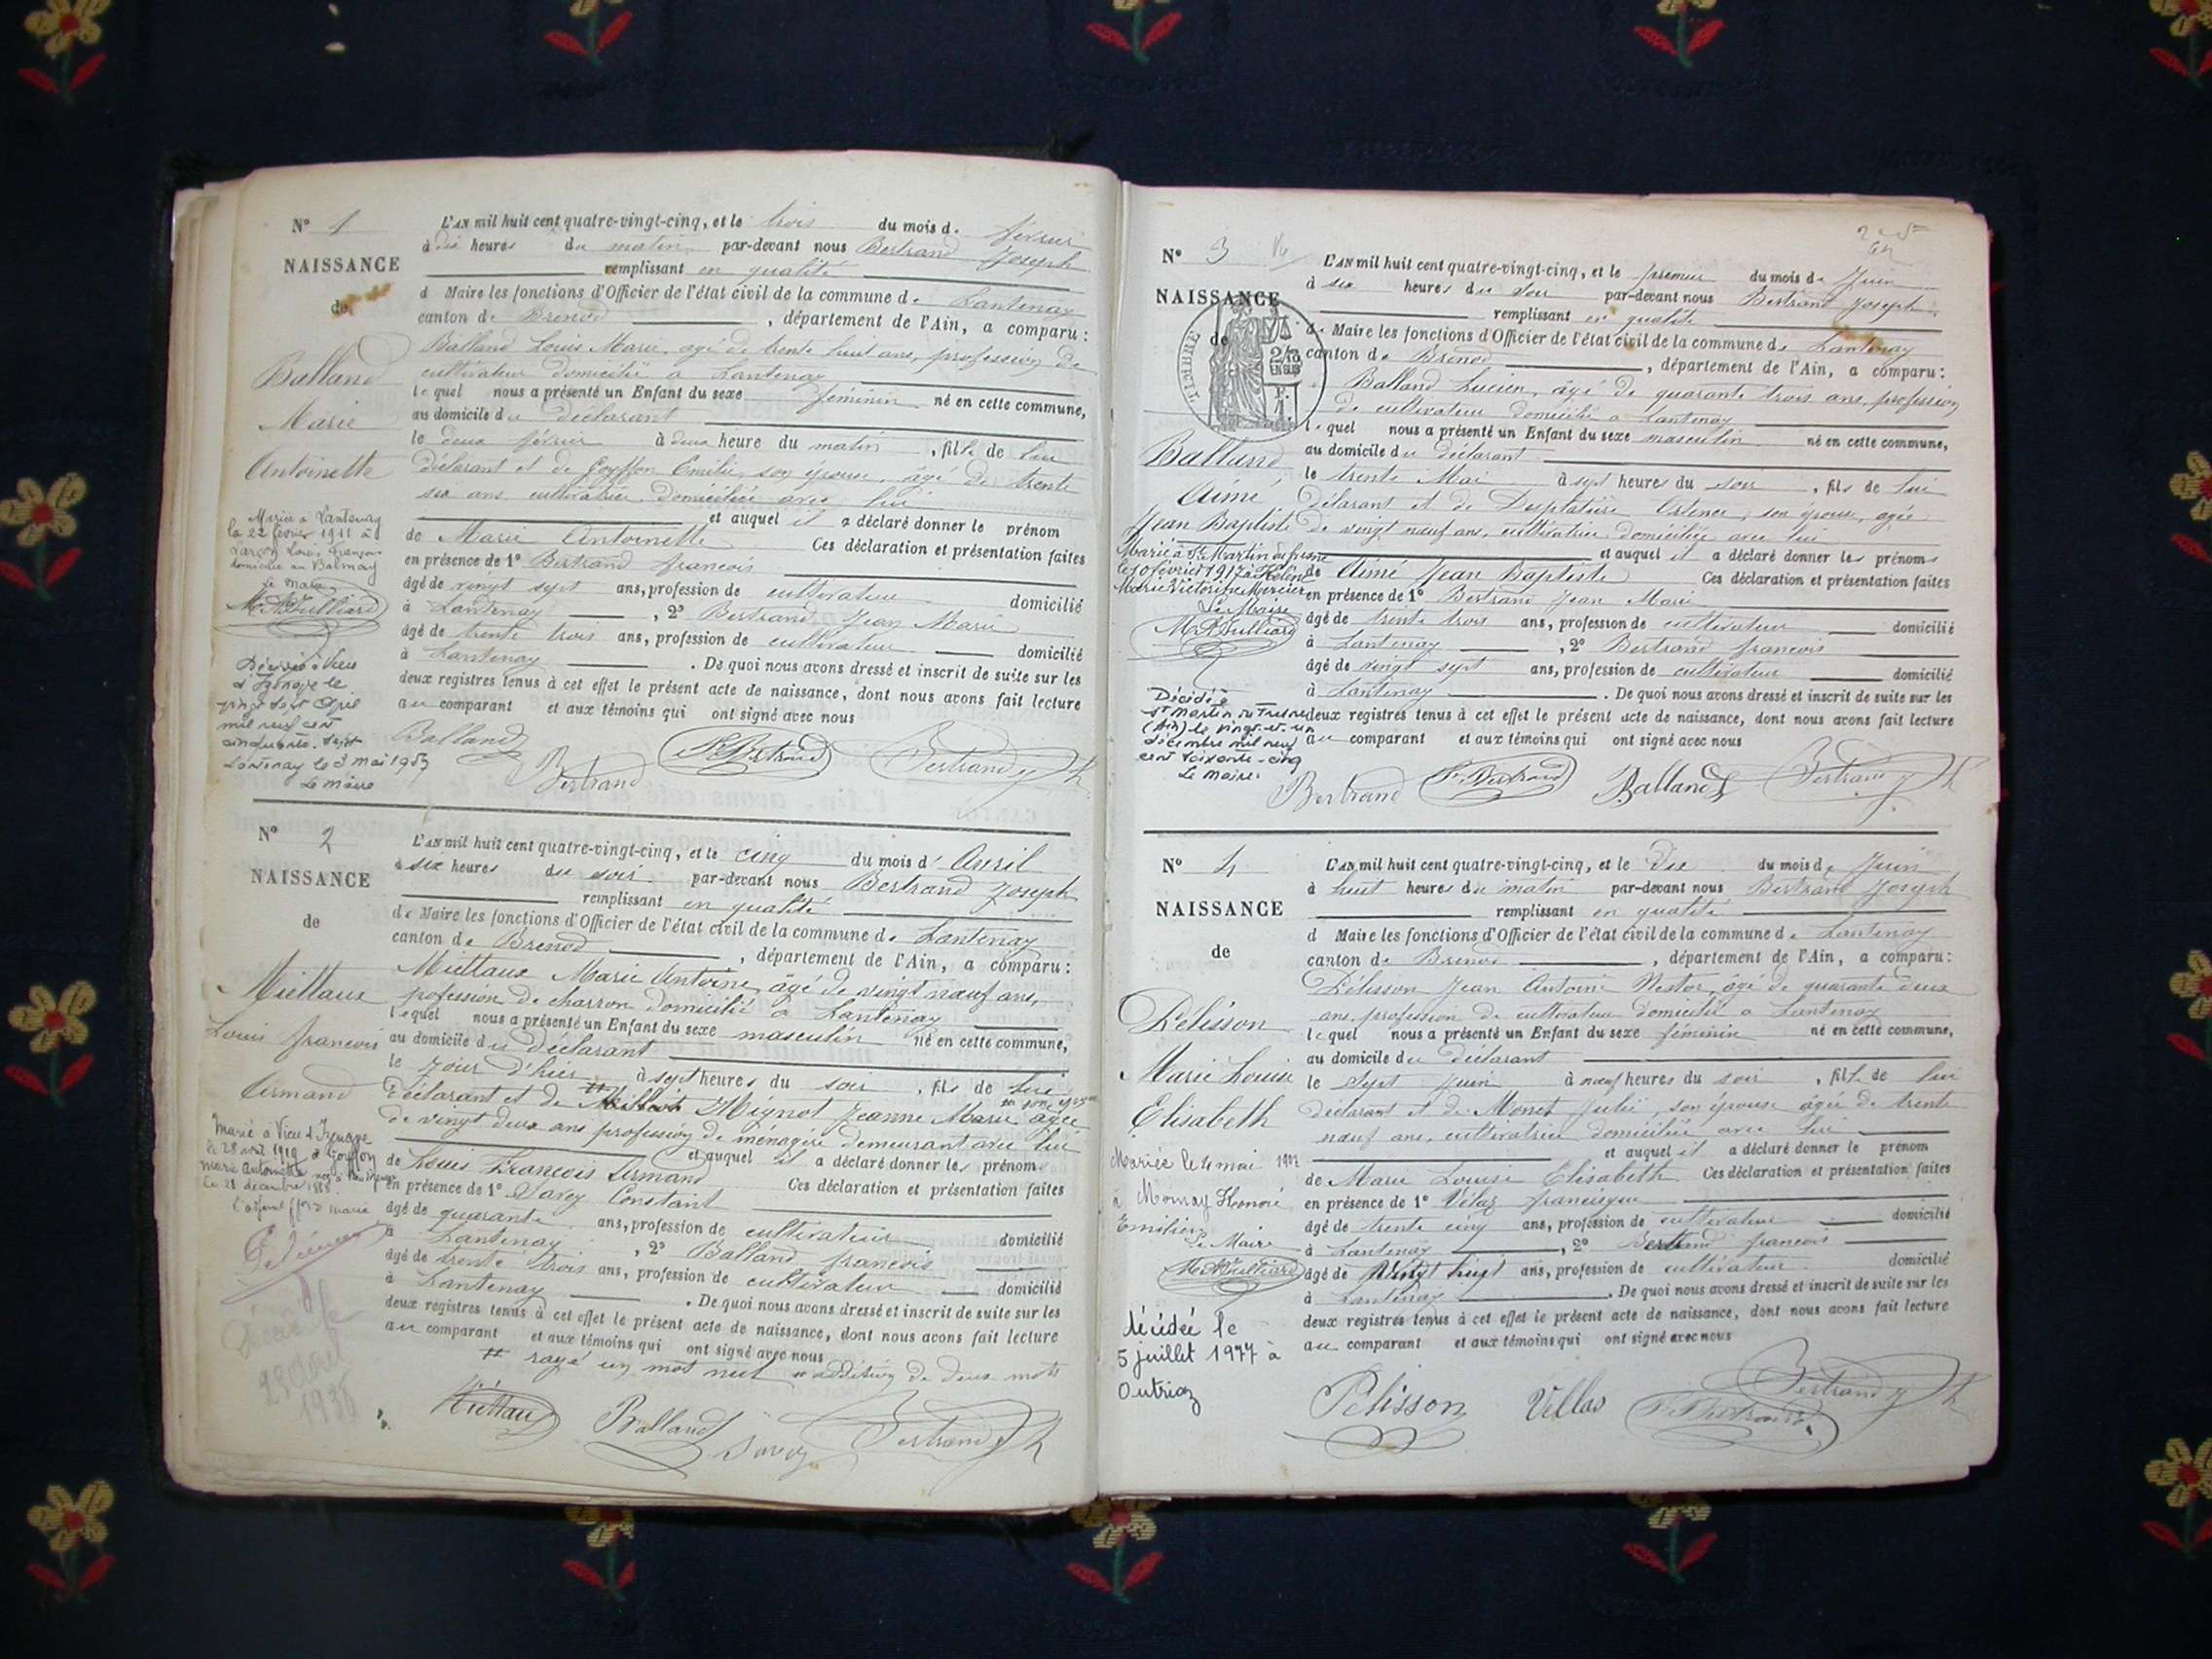 N° 1
NAISSANCE
de
Balland
Marie
Antoinette
Mariée à Lantenay
le 22 février 1911 à
Larçon Louis François
domicilié au Balmay
Le Maire
Décédée à Vieu
d'Izenave le
vingt sept Avril
mil neuf cent
cinquante-sept
Lantenay le 3 mai 1957
Le Maire
L'AN mil huit cent quatre-vingt-cinq, et le trois du mois de février
à dix heures du matin par-devant nous Bertrand Joseph
remplissant en qualité
d Maire les fonctions d'Officier de l'état civil de la commune de Lantenay
canton de Brénod, département de l'Ain, a comparu :
Balland Louis Marie, agé de trente huit ans, profession de
cultivateur domicilié à Lantenay
lequel nous a présenté un Enfant du sexe féminin né en cette commune,
au domicile du déclarant
le deux février à deux heure du matin, fille de lui
déclarant et de Goyffon Emilie son épouse, âgé de trente
six ans cultivatrice domiciliée avec lui
et auquel il a déclaré donner le prénom
de Marie Antoinette Ces déclaration et présentation faites
en présence de 1° Bertrand françois
âgé de vingt sept ans, profession de cultivateur domicilié
à Lantenay, 2° Bertrand Jean Marie
âgé de trente trois ans, profession de cultivateur domicilié
à Lantenay. De quoi nous avons dressé et inscrit de suite sur les
deux registres tenus à cet effet le présent acte de naissance, dont nous avons fait lecture
au comparant et aux témoins qui ont signé avec nous
Balland Bertrand F. Bertrand Bertrand Jh
N° 2
NAISSANCE
de
Miettaux
Louis françois
Armand
Marié à Vieu d'Izenave
le 28 avril 1919 à Goyffon
Marie Antoinette
le 21 décembre 1888
1936
L'AN mil huit cent quatre-vingt-cinq, et le cinq du mois d' Avril
à six heures du soir par-devant nous Bertrand Joseph
remplissant en qualité
de Maire les fonctions d'Officier de l'état civil de la commune de Lantenay
canton de Brénod, département de l'Ain, a comparu :
Miettaux Marie Antoine, âgé de vingt neuf ans,
pofession de charron domicilié à Lantenay
lequel nous a présenté un Enfant du sexe masculin né en cette commune,
au domicile du déclarant
le jour d'hier à sept heures du soir, fils de lui
déclarant et de Mignot Jeanne Marie son épouse âgée
de vingt deux ans profession de ménagère demeurant avec lui
et auquel il a déclaré donner les prénoms
de Louis François Armand Ces déclaration et présentation faites
en présence de 1° Savey Constant
âgé de quarante ans, profession de cultivateur domicilié
à Lantenay, 2° Balland françois
âgé de trente trois ans, profession de cultivateur domicilié
à Lantenay. De quoi nous avons dressé et inscrit de suite sur les
deux registres tenus à cet effet le présent acte de naissance, dont nous avons fait lecture
au comparant et aux témoins qui ont signé avec nous
rayé un mot nul addition de deux mots
Miettaux Balland Savey Bertrand Jh
N° 3
NAISSANCE
de
TIMBRE
Balland
Aimé
Jean Baptiste
Marié à St Martin du fresne
le 10 février 1917 à Hélène
Marie Victorine Mercier
Le Maire
Décédé à
St Martin du Fresne
(Ain) le vingt-et-un
décembre mil neuf
cent soixante-cinq
Le Maire
L'AN mil huit cent quatre-vingt-cinq, et le premier du mois de Juin
à six heures du soir par-devant nous Bertrand Joseph
remplissant en qualité
de Maire les fonctions d'Officier de l'état civil de la commune de Lantenay
canton de Brénod, département de l'Ain, a comparu :
Balland Lucien, âgé de quarante trois ans, profession
de cultivateur domicilié à Lantenay
lequel nous a présenté un Enfant du sexe masculin né en cette commune,
au domicile du déclarant
le trente Mai à sept heures du soir, fils de lui
déclarant et de son épouse, agée
de vingt neuf ans, cultivatrice domiciliée avec lui
et auquel il a déclaré donner les prénoms
de Aimé Jean Baptiste Ces déclaration et présentation faites
en présence de 1° Bertrand Jean Marie
âgé de trente trois ans, profession de cultivateur domicilié
à Lantenay, 2° Bertrand françois
âgé de vingt sept ans, profession de cultivateur domicilié
à Lantenay. De quoi nous avons dressé et inscrit de suite sur les
deux registres tenus à cet effet le présent acte de naissance, dont nous avons fait lecture
au comparant et aux témoins qui ont signé avec nous
Bertrand F. Bertrand Balland Bertrand Jh
N° 4
NAISSANCE
de
Pélisson
Marie Louise
Elisabeth
Mariée le 4 mai 1912
à Mornay Honoré
Emilien
Le Maire
décédée le
5 juillet 1977 à
Outriaz
L'AN mil huit cent quatre-vingt-cinq, et le Dix du mois de Juin
à huit heures du matin par-devant nous Bertrand Joseph
remplissant en qualité
d Maire les fonctions d'Officier de l'état civil de la commune de Lantenay
canton de Brénod, département de l'Ain, a comparu :
Pélisson Jean Antoine Nestor, âgé de quarante deux
ans, profession de cultivateur domicilié à Lantenay
lequel nous a présenté un Enfant du sexe féminin né en cette commune,
au domicile du déclarant
le Sept Juin à neuf heures du soir, fille de lui
déclarant et de Monet Julie, son épouse âgée de trente
neuf ans, cultivatrice domiciliée avec lui
et auquel il a déclaré donner le prénom
de Marie Louise Elisabeth Ces déclaration et présentation faites
en présence de 1° Vélas francisque
âgé de trente cinq ans, profession de cultivateur domicilié
à Lantenay, 2° Bertrand françois
âgé de Vingt huit ans, profession de cultivateur domicilié
à Lantenay. De quoi nous avons dressé et inscrit de suite sur les
deux registres tenus à cet effet le présent acte de naissance, dont nous avons fait lecture
au comparant et aux témoins qui ont signé avec nous
Pélisson Vellas F. Bertrand Bertrand Jh